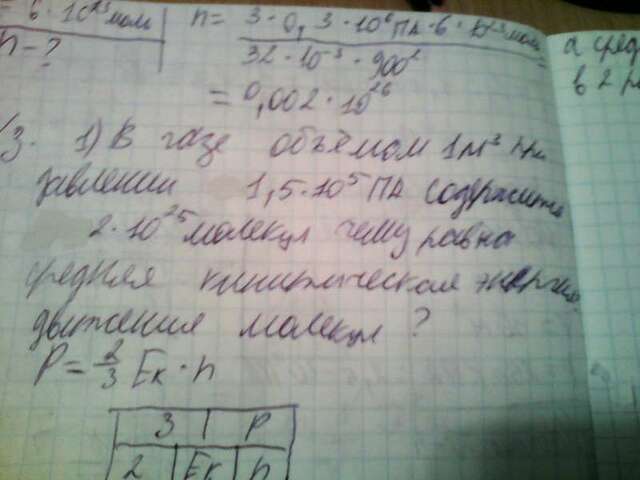 = 6 · 10²³ моль
n - ?
n = 3 · 0,3 · 10⁶ ПА · 6 · 10²³ моль
32 · 10⁻³ · 900²
= 0,002 · 10²⁶
а сред
в 2 ра
3. 1) В газе объёмом 1 м³ при
давлении 1,5 · 10⁵ ПА содержится
2 · 10²⁵ молекул чему равна
средняя кинитическая энергия
движения молекул ?
P = 2/3 Eк · n
3 P
2 Eк n